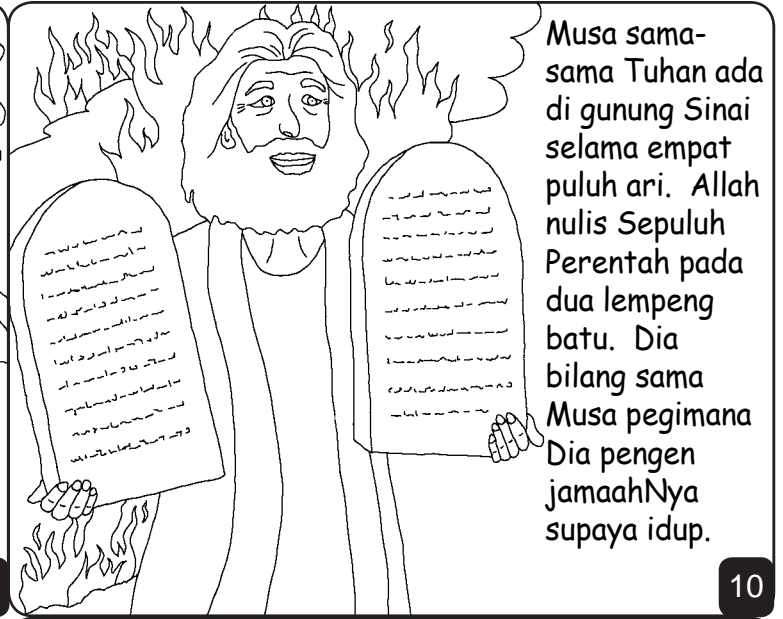 Musa sama-
sama Tuhan ada
di gunung Sinai
selama empat
puluh ari.  Allah
nulis Sepuluh
Perentah pada
dua lempeng
batu.  Dia
bilang sama
Musa pegimana
Dia pengen
jamaahNya
supaya idup.
10